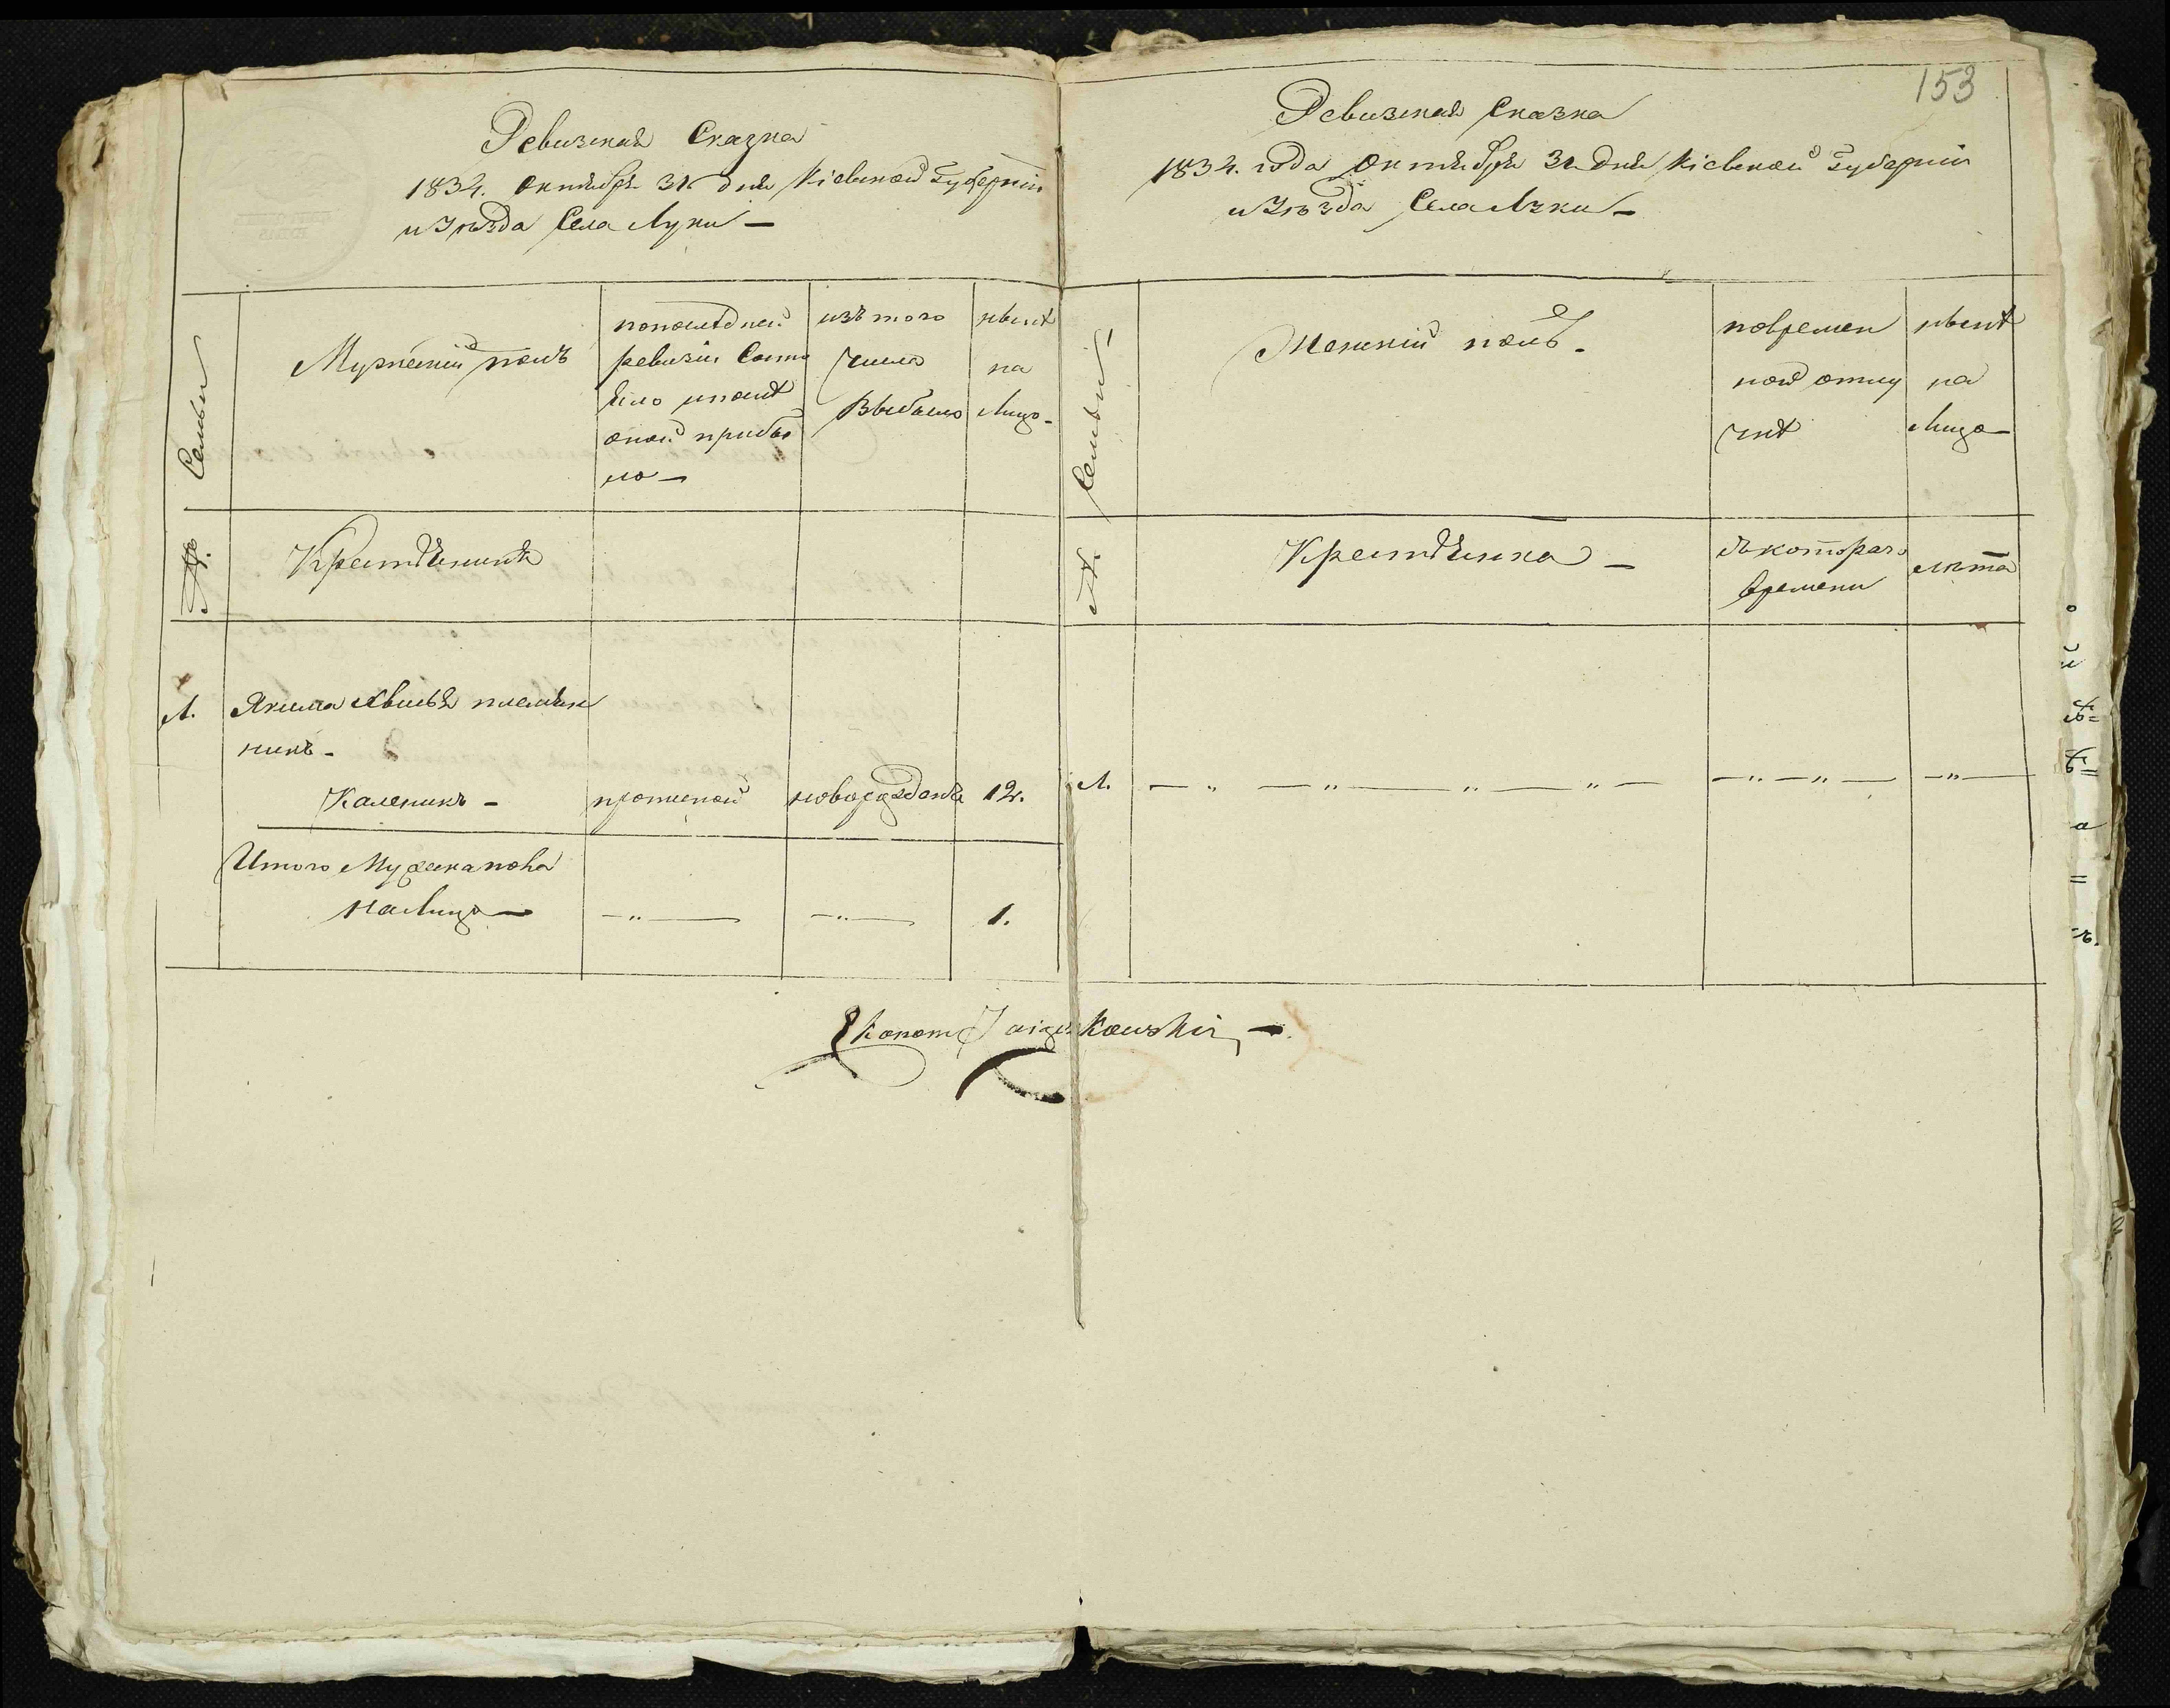 Ревизская Сказка
1834. октября 31 дня Кіевской Губерніи
и Уѣзда Села Луки —
Семьи
Мужескій полъ
попослѣдней
ревизіи Состо
яло ипослѣ
оной прибы
ло —
изъ того
числа
Выбыло
нынѣ
на
Лицо -
№.
Крестьянинъ
1.
Якима племян
никъ -
Каленикъ -
прописной
новорожденъ
12.
Итого Мужеска пола
на Лицо —
— " —
— " —
1.
153
Ревизская Сказка
1834. года Октября 31 дня Кіевской Губерніи
и Уѣзда Села Луки —
Семьи
Женскій полъ -
повремен
ной отлу
чкѣ
нынѣ
на
Лицо —
№.
Крестьянка —
съ котораго
времени
лѣта
1.
— " — " — " — " —
— " — " —
— " —
Ekonom